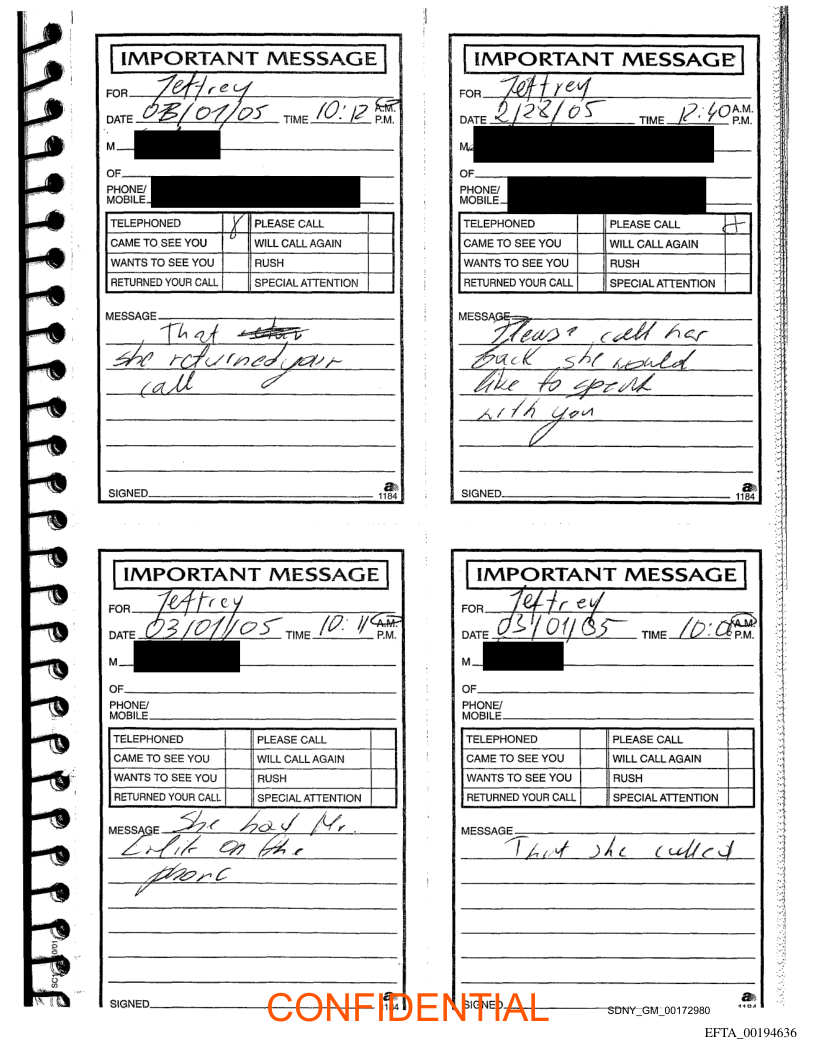 IMPORTANT MESSAGE
FOR Jeffrey
DATE 03/01/05 TIME 10:12 A.M. P.M.
M
OF
PHONE/
MOBILE
TELEPHONED PLEASE CALL
CAME TO SEE YOU WILL CALL AGAIN
WANTS TO SEE YOU RUSH
RETURNED YOUR CALL SPECIAL ATTENTION
MESSAGE
That
she returned your
call
SIGNED
1184
IMPORTANT MESSAGE
FOR Jeffrey
DATE 2/28/05 TIME 12:40 A.M. P.M.
M
OF
PHONE/
MOBILE
TELEPHONED PLEASE CALL
CAME TO SEE YOU WILL CALL AGAIN
WANTS TO SEE YOU RUSH
RETURNED YOUR CALL SPECIAL ATTENTION
MESSAGE
Please call her
back she would
like to speak
with you
SIGNED
1184
IMPORTANT MESSAGE
FOR Jeffrey
DATE 03/01/05 TIME 10:11 A.M. P.M.
M
OF
PHONE/
MOBILE
TELEPHONED PLEASE CALL
CAME TO SEE YOU WILL CALL AGAIN
WANTS TO SEE YOU RUSH
RETURNED YOUR CALL SPECIAL ATTENTION
MESSAGE She had Mr.
on the
phone
SIGNED
1184
IMPORTANT MESSAGE
FOR Jeffrey
DATE 03/01/05 TIME A.M. P.M.
M
OF
PHONE/
MOBILE
TELEPHONED PLEASE CALL
CAME TO SEE YOU WILL CALL AGAIN
WANTS TO SEE YOU RUSH
RETURNED YOUR CALL SPECIAL ATTENTION
MESSAGE
That she called
SIGNED
CONFIDENTIAL
SDNY_GM_00172980
EFTA_00194636